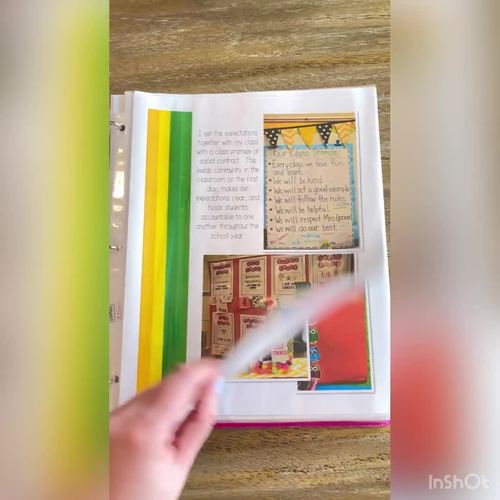 I set the expectations
together with my class
with a class promise or
social contract. This
builds community in the
classroom on the first
day, makes our
expectations clear, and
holds students
accountable to one
another throughout the
school year.
Our Class Promise
• Everyday, we have fun
and learn.
• We will be kind.
• We will set a good example
• We will follow the rules.
• We will be helpful.
• We will respect Mrs.
• We will do our best.
InShOt